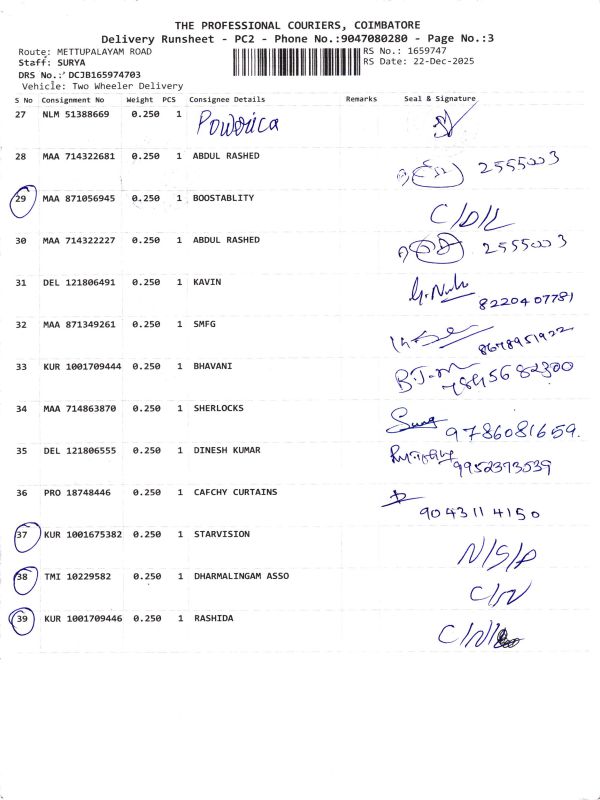 THE PROFESSIONAL COURIERS, COIMBATORE
Delivery Runsheet - PC2 - Phone No.:9047080280 - Page No.:3
Route: METTUPALAYAM ROAD RS No.: 1659747
Staff: SURYA RS Date: 22-Dec-2025
DRS No.: DCJB165974703
Vehicle: Two Wheeler Delivery
S No Consignment No Weight PCS Consignee Details Remarks Seal & Signature
27 NLM 51388669 0.250 1 Powerica
28 MAA 714322681 0.250 1 ABDUL RASHED 2555003
29 MAA 871056945 0.250 1 BOOSTABLITY C/D/L
30 MAA 714322227 0.250 1 ABDUL RASHED 2555003
31 DEL 121806491 0.250 1 KAVIN
8220407781
32 MAA 871349261 0.250 1 SMFG
8678951922
33 KUR 1001709444 0.250 1 BHAVANI
7845682300
34 MAA 714863870 0.250 1 SHERLOCKS
9786081659.
35 DEL 121806555 0.250 1 DINESH KUMAR
9952373539
36 PRO 18748446 0.250 1 CAFCHY CURTAINS
9043114150
37 KUR 1001675382 0.250 1 STARVISION N/S/P
38 TMI 10229582 0.250 1 DHARMALINGAM ASSO C/N
39 KUR 1001709446 0.250 1 RASHIDA C/N/